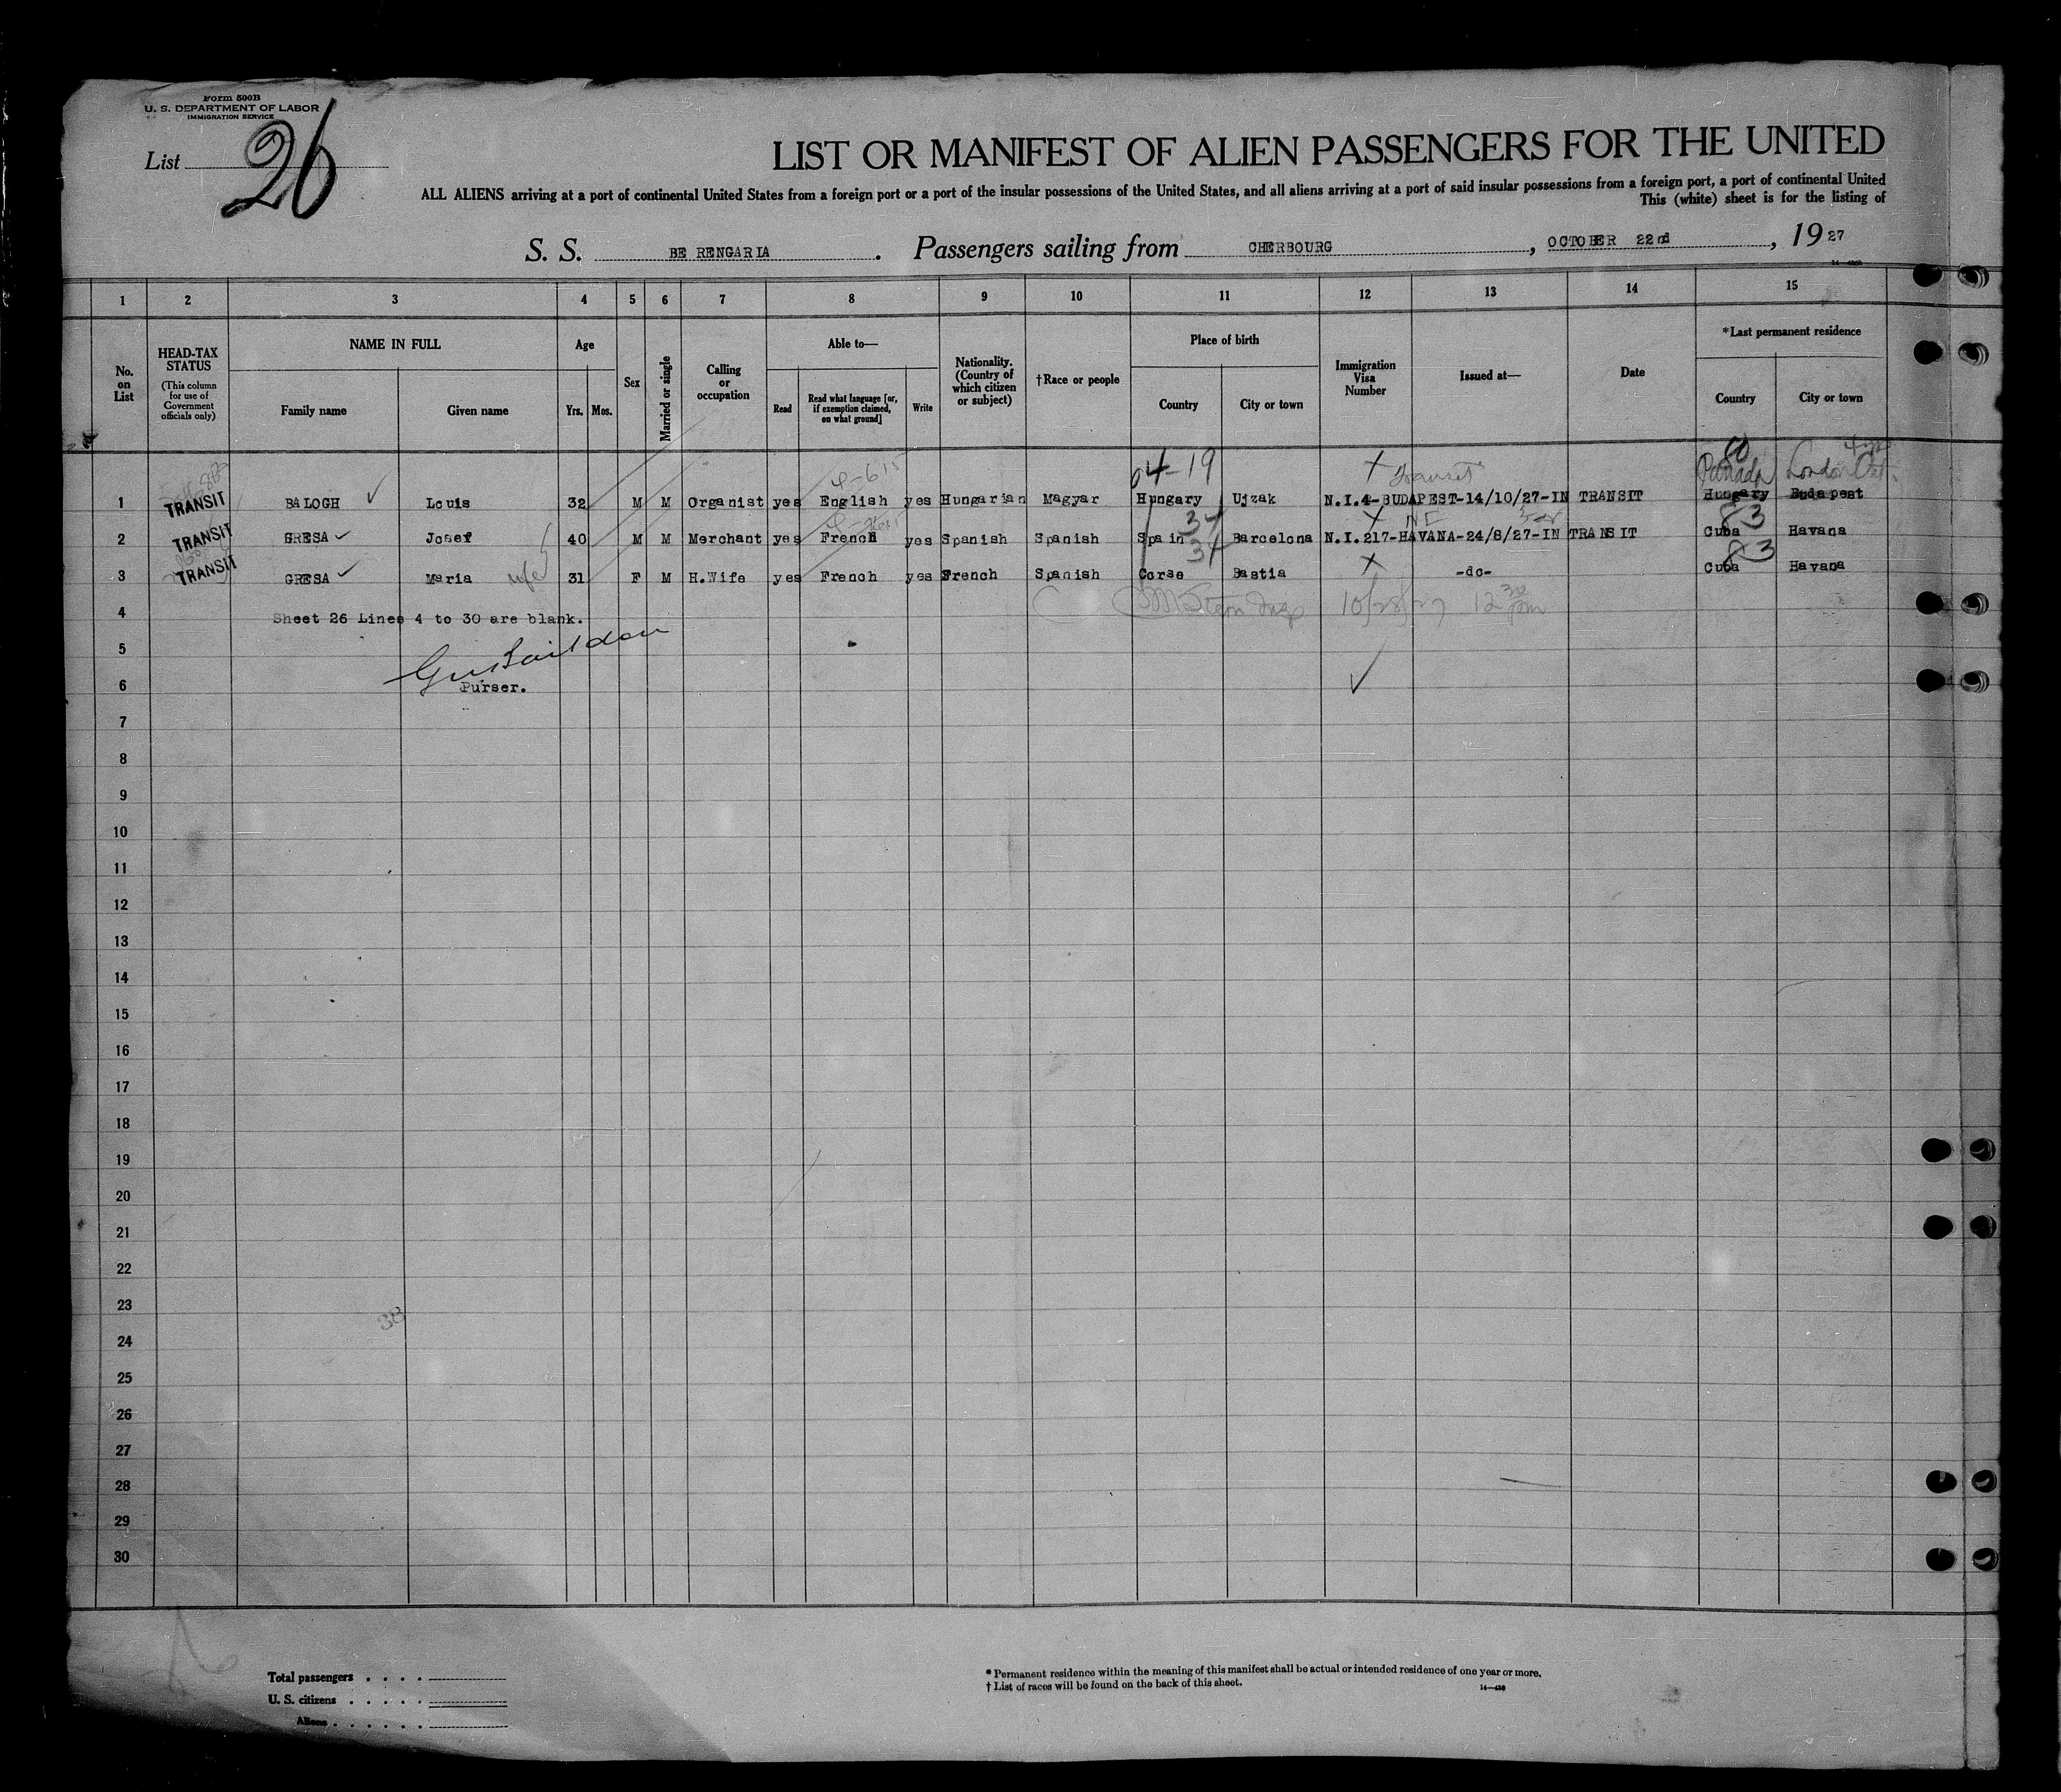 Form 500B
U. S. DEPARTMENT OF LABOR
IMMIGRATION SERVICE
List 26
LIST OR MANIFEST OF ALIEN PASSENGERS FOR THE UNITED
ALL ALIENS arriving at a port of continental United States from a foreign port or a port of the insular possessions of the United States, and all aliens arriving at a port of said insular possessions from a foreign port, a port of continental United
This (white) sheet is for the listing of
S. S. BERENGARIA . Passengers sailing from CHERBOURG , OCTOBER 22nd , 1927
1 2 3 4 5 6 7 8 9 10 11 12 13 14 15
No. on List
HEAD-TAX STATUS
(This column for use of Government officials only)
NAME IN FULL
Family name Given name
Age
Yrs. Mos.
Sex
Married or single
Calling or occupation
Able to—
Read
Read what language [or, if exemption claimed, on what ground]
Write
Nationality. (Country of which citizen or subject)
†Race or people
Place of birth
Country City or town
Immigration Visa Number
Issued at—
Date
*Last permanent residence
Country City or town
4-615 04-19 Transit Canada London Ont.
1 TRANSIT BALOGH Louis 32 M M Organist yes English yes Hungarian Magyar Hungary Ujzak N.I.4-BUDAPEST-14/10/27-IN TRANSIT Hungary Budapest
34 83
2 TRANSIT GRESA Josef 40 M M Merchant yes French yes Spanish Spanish Spain Barcelona N.I.217-HAVANA-24/8/27-IN TRANSIT Cuba Havana
34 83
3 TRANSIT GRESA Maria wife 31 F M H.Wife yes French yes French Spanish Corse Bastia -do- Cuba Havana
10/28/27 12 30 pm
4 Sheet 26 Lines 4 to 30 are blank.
5
6 Purser.
7
8
9
10
11
12
13
14
15
16
17
18
19
20
21
22
23
38
24
25
26
27
28
29
30
Total passengers
U. S. citizens
Aliens
* Permanent residence within the meaning of this manifest shall be actual or intended residence of one year or more.
† List of races will be found on the back of this sheet.